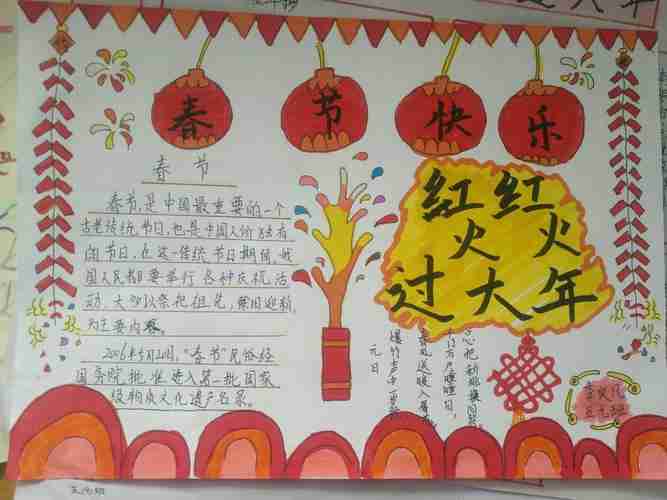 春节快乐
春节
春节,是中国最重要的一个
古老传统节日,也是中国人们独有
的节日,在这一传统节日期间,我
国人民都要举行各种庆祝活
动,大都以祭祀祖先,除旧迎新,
为主要内容。
2006年5月20日,“春节”民俗经
国务院批准进入第一批国家
级物质文化遗产名录。
红红
火火
过大年
元日
爆竹声中一岁除
春风送暖入屠苏
千门万户曈曈日,
总把新桃换旧符。